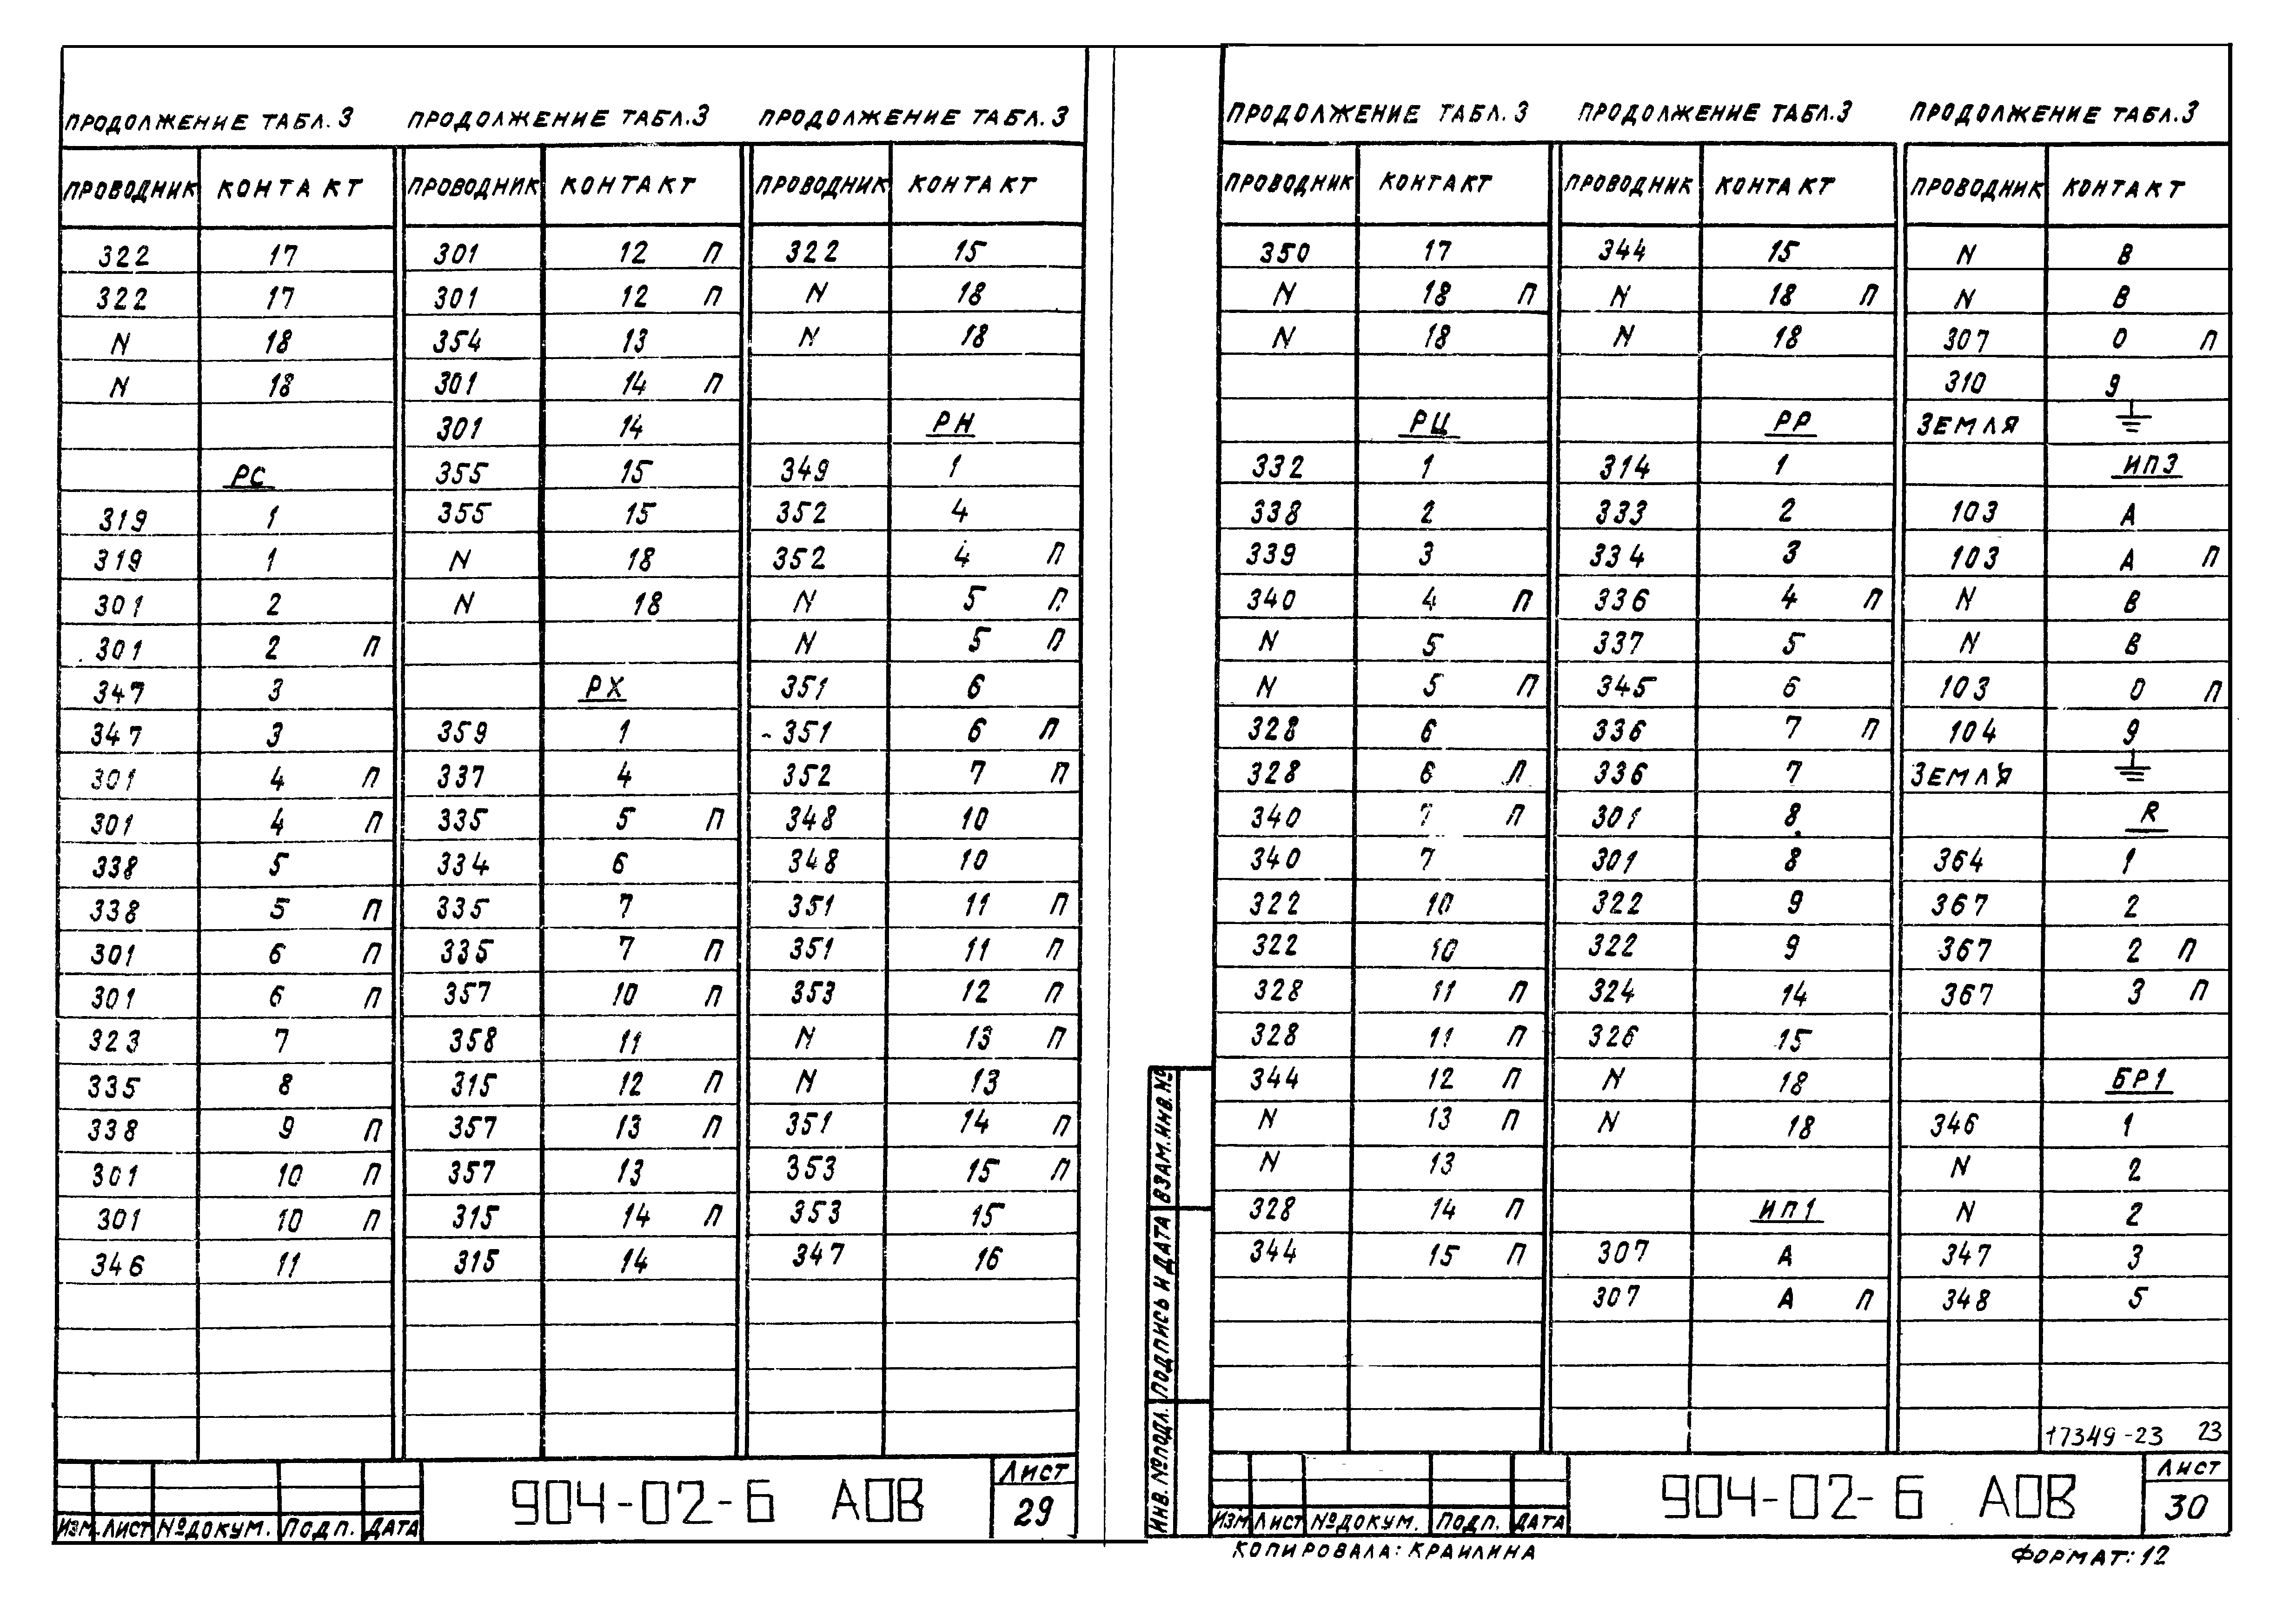 ПРОДОЛЖЕНИЕ ТАБЛ. 3 ПРОДОЛЖЕНИЕ ТАБЛ.3 ПРОДОЛЖЕНИЕ ТАБЛ.3
ПРОВОДНИК КОНТАКТ ПРОВОДНИК КОНТАКТ ПРОВОДНИК КОНТАКТ
322 17 301 12 П 322 15
322 17 301 12 П N 18
N 18 354 13 N 18
N 18 301 14 П
301 14 РН
РС 355 15 349 1
319 1 355 15 352 4
319 1 N 18 352 4 П
301 2 N 18 N 5 П
301 2 П N 5 П
347 3 РХ 351 6
347 3 359 1 351 6 П
301 4 П 337 4 352 7 П
301 4 П 335 5 П 348 10
338 5 334 6 348 10
338 5 П 335 7 351 11 П
301 6 П 335 7 П 351 11 П
301 6 П 357 10 П 353 12 П
323 7 358 11 N 13 П
335 8 315 12 П N 13
338 9 П 357 13 П 351 14 П
301 10 П 357 13 353 15 П
301 10 П 315 14 П 353 15
346 11 315 14 347 16
904-02-6 АОВ
ЛИСТ
29
ИЗМ. ЛИСТ №ДОКУМ. ПОДП. ДАТА
ПРОДОЛЖЕНИЕ ТАБЛ. 3 ПРОДОЛЖЕНИЕ ТАБЛ.3 ПРОДОЛЖЕНИЕ ТАБЛ.3
ПРОВОДНИК КОНТАКТ ПРОВОДНИК КОНТАКТ ПРОВОДНИК КОНТАКТ
350 17 344 15 N В
N 18 П N 18 П N В
N 18 N 18 307 0 П
310 9
РЦ РР ЗЕМЛЯ
332 1 314 1 ИП3
338 2 333 2 103 А
339 3 334 3 103 А П
340 4 П 336 4 П N В
N 5 337 5 N В
N 5 П 345 6 103 0 П
328 6 336 7 П 104 9
328 6 П 336 7 ЗЕМЛЯ
340 7 П 301 8 R
340 7 301 8 364 1
322 10 322 9 367 2
322 10 322 9 367 2 П
328 11 П 324 14 367 3 П
328 11 П 326 15
344 12 П N 18 БР1
N 13 П N 18 346 1
N 13 N 2
328 14 П ИП1 N 2
344 15 П 307 А 347 3
307 А П 348 5
17349-23 23
ИНВ. №ПОДЛ. ПОДПИСЬ И ДАТА ВЗАМ.ИНВ.№
904-02-6 АОВ
ЛИСТ
30
ИЗМ ЛИСТ №ДОКУМ. ПОДП. ДАТА
КОПИРОВАЛА: КРАИЛИНА ФОРМАТ: 12